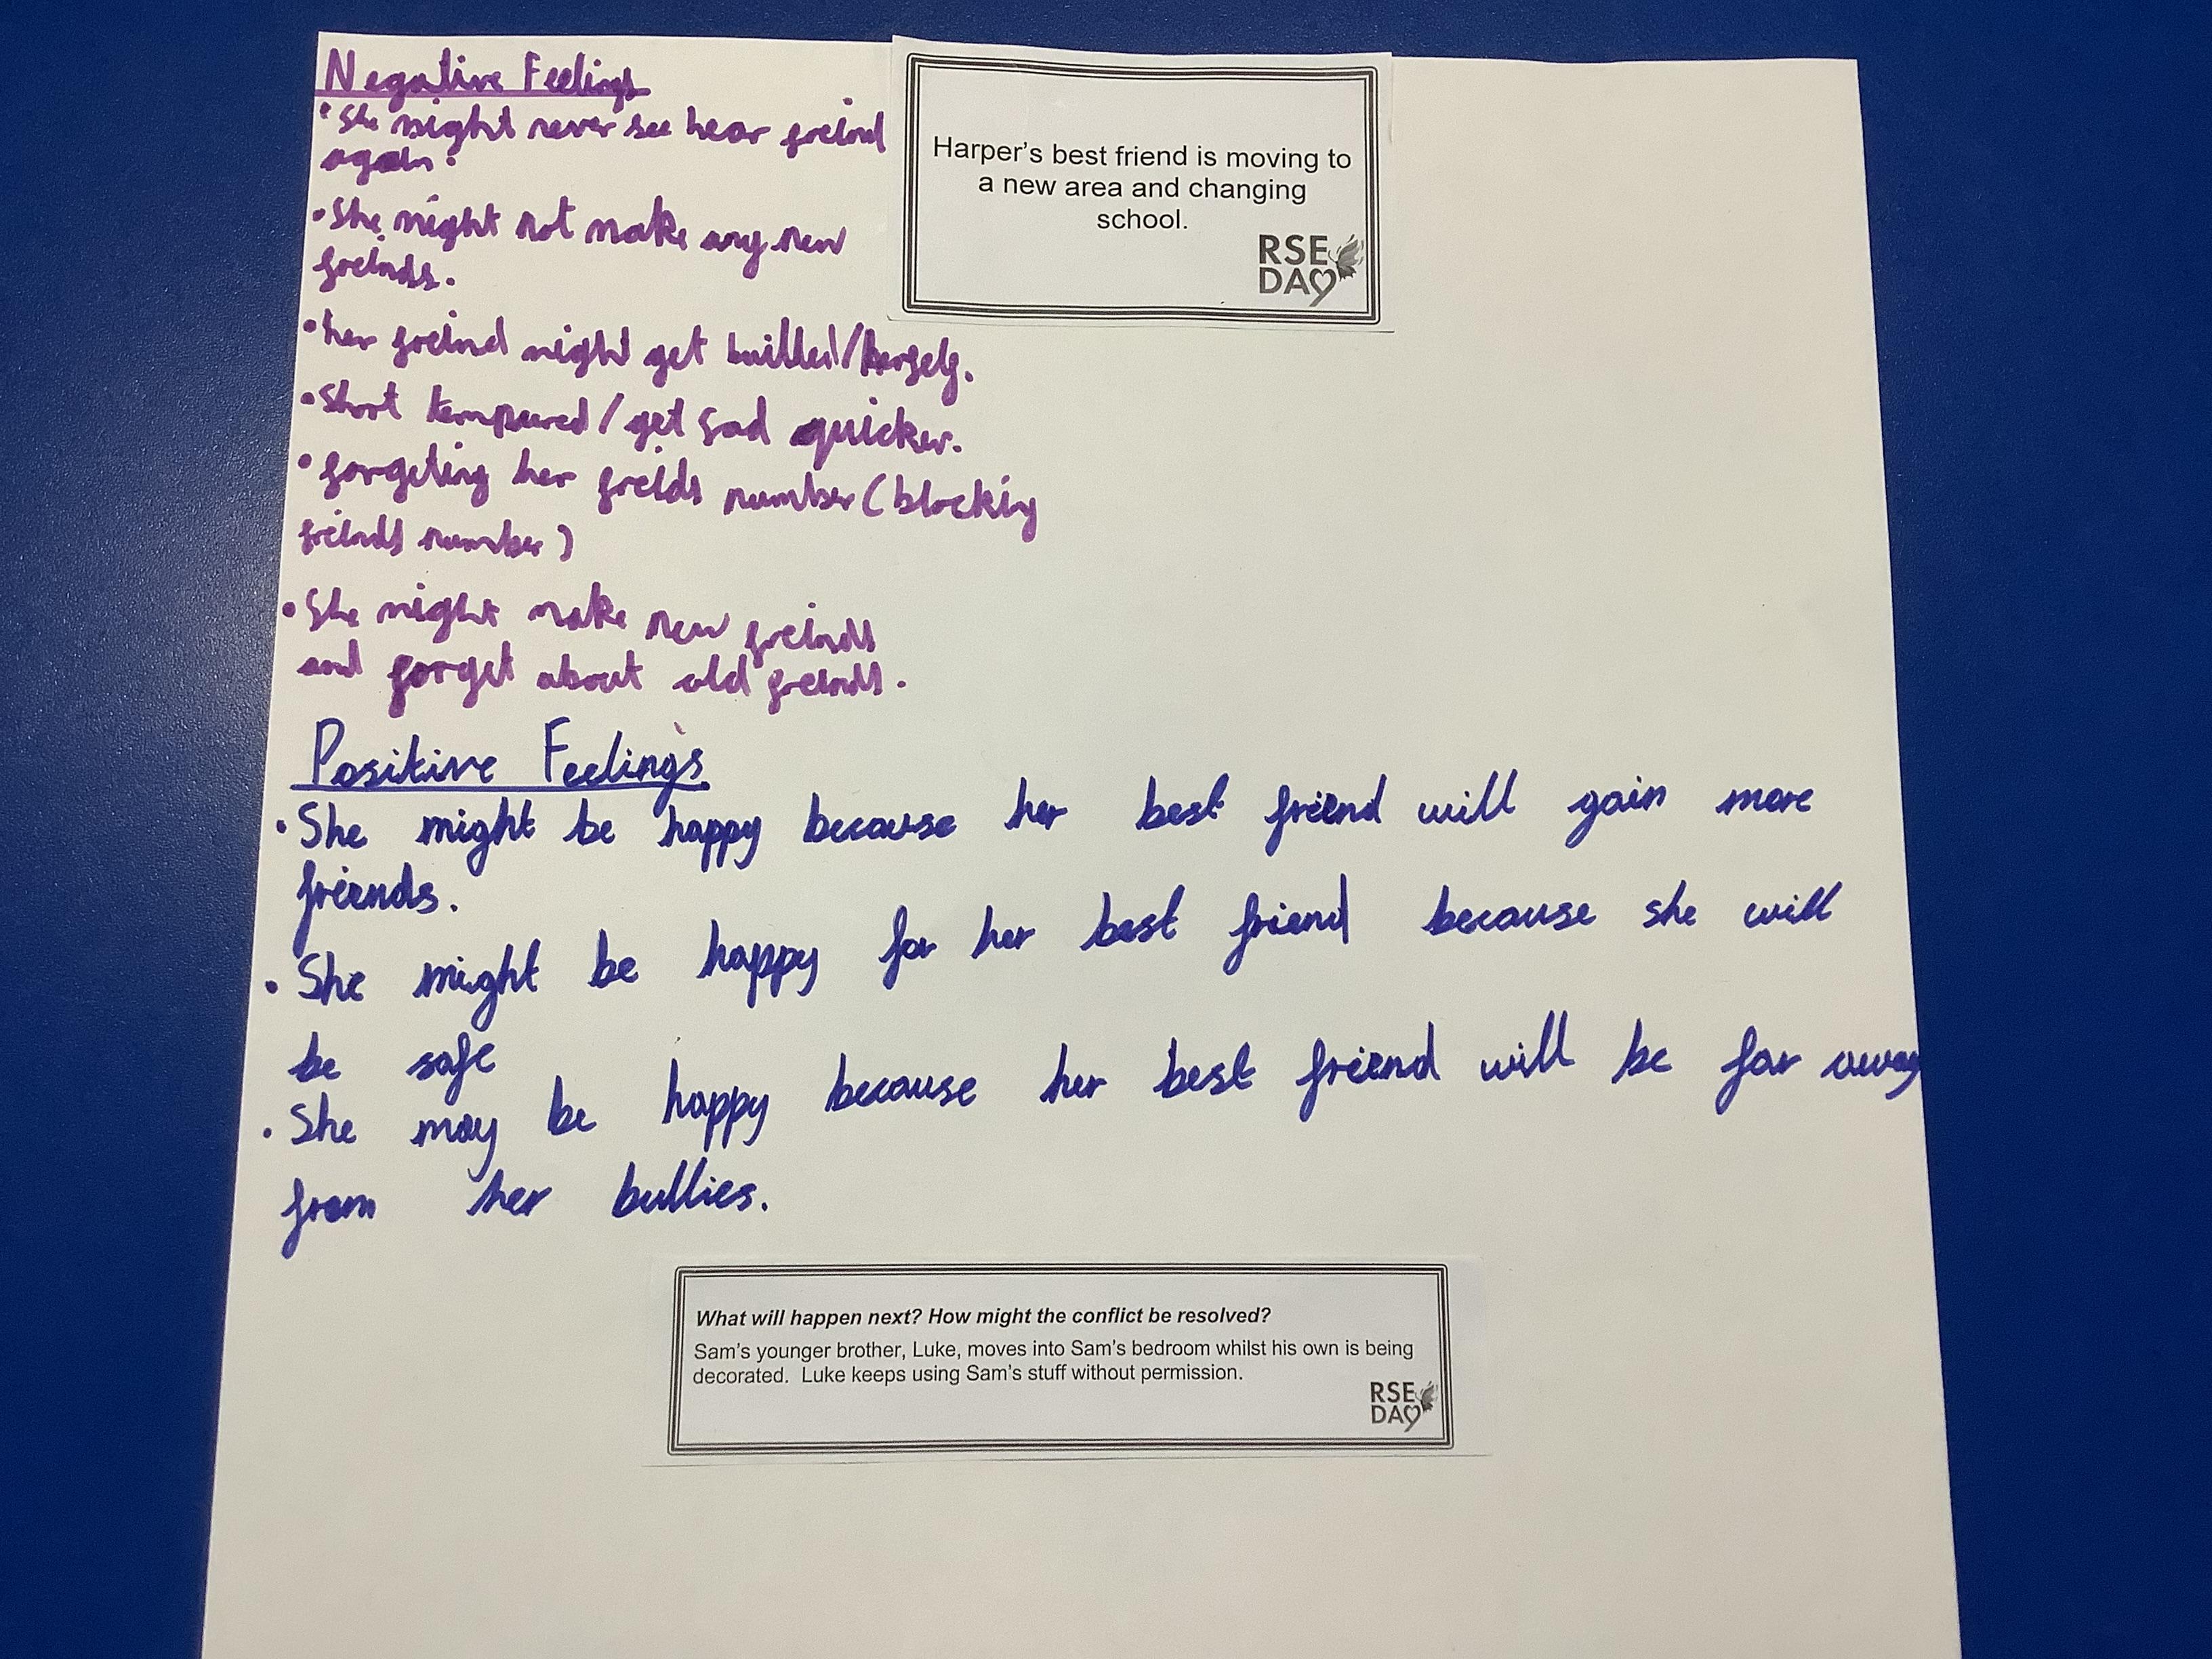 Negative Feelings
• She might never see hear freind
again.
• She might not make any new
freinds.
• her freind might get buillied/herself.
• Short tempured/get sad quicker.
• forgeting her freids number (blocking
freinds number)
• She might make new freinds
and forget about old freinds.
Harper's best friend is moving to
a new area and changing
school.
RSE
DAY
Positive Feelings
• She might be happy because her best friend will gain more
friends.
• She might be happy for her best friend because she will
be safe
• She may be happy because her best friend will be far away
from her bullies.
What will happen next? How might the conflict be resolved?
Sam's younger brother, Luke, moves into Sam's bedroom whilst his own is being
decorated. Luke keeps using Sam's stuff without permission.
RSE
DAY